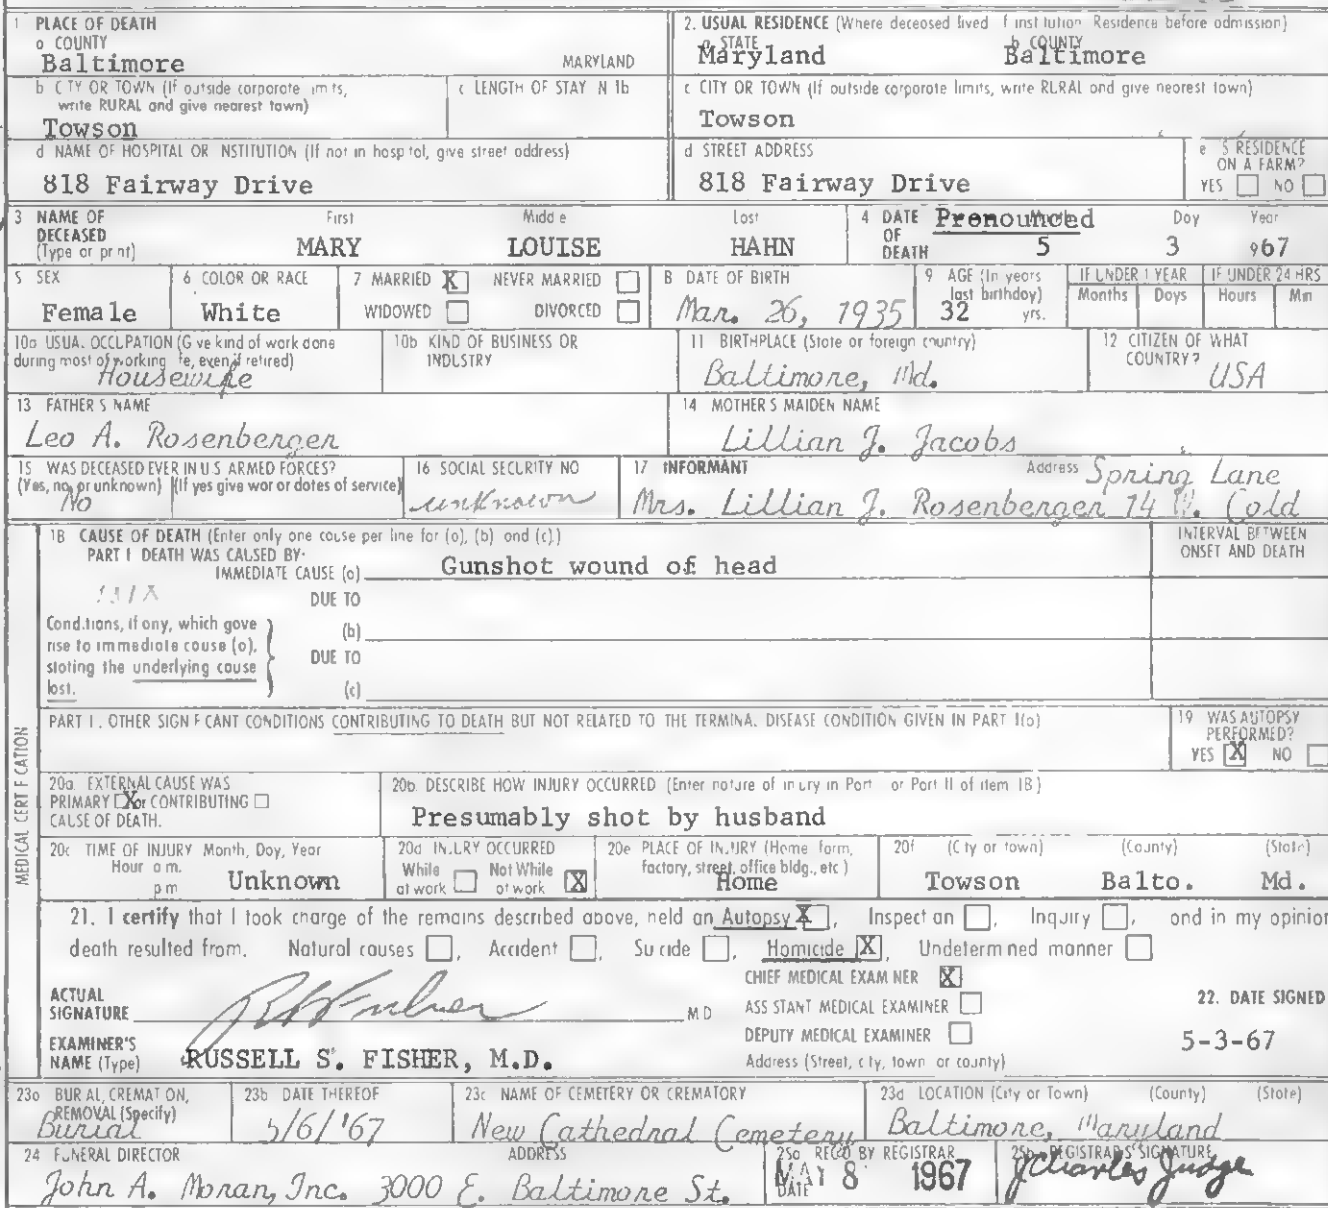 1 PLACE OF DEATH
a COUNTY
Baltimore MARYLAND
2. USUAL RESIDENCE (Where deceased lived f inst tution Residence before admission)
a STATE b COUNTY
Maryland Baltimore
b C TY OR TOWN (If outside corporate im ts, write RURAL and give nearest town)
Towson
c LENGTH OF STAY N 1b
c CITY OR TOWN (If outside corporate limits, write RURAL and give nearest town)
Towson
d NAME OF HOSPITAL OR NSTITUTION (If not in hosp tal, give street address)
818 Fairway Drive
d STREET ADDRESS
818 Fairway Drive
e S RESIDENCE ON A FARM?
YES NO
3 NAME OF DECEASED (Type or pr nt)
First Midd e Last
MARY LOUISE HAHN
4 DATE OF DEATH
Pronounced Month Day Year
5 3 967
5 SEX
Female
6 COLOR OR RACE
White
7 MARRIED X NEVER MARRIED
WIDOWED DIVORCED
8 DATE OF BIRTH
Mar. 26, 1935
9 AGE (In years last birthday)
32 yrs.
IF UNDER 1 YEAR IF UNDER 24 HRS
Months Days Hours Min
10a USUA. OCCUPATION (G ve kind of work done during most of working fe, even if retired)
Housewife
10b KIND OF BUSINESS OR INDUSTRY
11 BIRTHPLACE (State or foreign country)
Baltimore, Md.
12 CITIZEN OF WHAT COUNTRY?
USA
13 FATHER S NAME
Leo A. Rosenberger
14 MOTHER S MAIDEN NAME
Lillian J. Jacobs
15 WAS DECEASED EVER IN U S ARMED FORCES?
(Yes, no, or unknown) (If yes give war or dates of service)
No
16 SOCIAL SECURITY NO
unknown
17 INFORMANT Address Spring Lane
Mrs. Lillian J. Rosenberger 14 W. Cold
18 CAUSE OF DEATH (Enter only one cause per line for (a), (b) and (c).)
PART I DEATH WAS CAUSED BY:
IMMEDIATE CAUSE (a) Gunshot wound of head
INTERVAL BETWEEN ONSET AND DEATH
DUE TO
Conditions, if any, which gave rise to immediate cause (a), stating the underlying cause last.
(b)
DUE TO
(c)
PART I . OTHER SIGN F CANT CONDITIONS CONTRIBUTING TO DEATH BUT NOT RELATED TO THE TERMINA. DISEASE CONDITION GIVEN IN PART I(a)
19 WAS AUTOPSY PERFORMED?
YES X NO
MEDICAL CERT F CATION
20a. EXTERNAL CAUSE WAS
PRIMARY X or CONTRIBUTING
CAUSE OF DEATH.
20b. DESCRIBE HOW INJURY OCCURRED (Enter nature of in ury in Part or Part II of item 18)
Presumably shot by husband
20c TIME OF INJURY Month, Day, Year
Hour a m.
p m Unknown
20d INJURY OCCURRED
While at work Not While at work X
20e PLACE OF INJURY (Home farm, factory, street, office bldg., etc )
Home
20f (C ty or town) (County) (State)
Towson Balto. Md.
21. I certify that I took charge of the remains described above, held an Autopsy X, Inspect an , Inquiry , and in my opinion
death resulted from. Natural causes , Accident , Su cide , Homicide X, Undeterm ned manner
ACTUAL SIGNATURE M D
CHIEF MEDICAL EXAM NER X
ASS STANT MEDICAL EXAMINER
DEPUTY MEDICAL EXAMINER
Address (Street, c ty, town or county)
22. DATE SIGNED
5-3-67
EXAMINER'S NAME (Type) RUSSELL S. FISHER, M.D.
23a BUR AL, CREMAT ON, REMOVAL (Specify)
Burial
23b DATE THEREOF
5/6/'67
23c NAME OF CEMETERY OR CREMATORY
New Cathedral Cemetery
23d LOCATION (City or Town) (County) (State)
Baltimore, Maryland
24 FUNERAL DIRECTOR ADDRESS
John A. Moran, Inc. 3000 E. Baltimore St.
25a REC'D BY REGISTRAR
DATE MAY 8 1967
25b REGISTRAR'S SIGNATURE
J Charles Judge